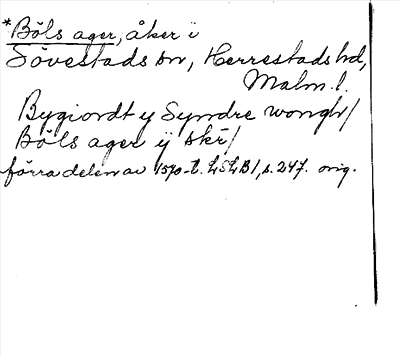 *Böls ager, åker i
Sövestads sn, Herrestads hd,
Malm. l.
Bygiordt y Syndre wongh/
Böls ager ÿ skr̄/
förra delen av 1570-t. LSLB 1, s. 247. orig.